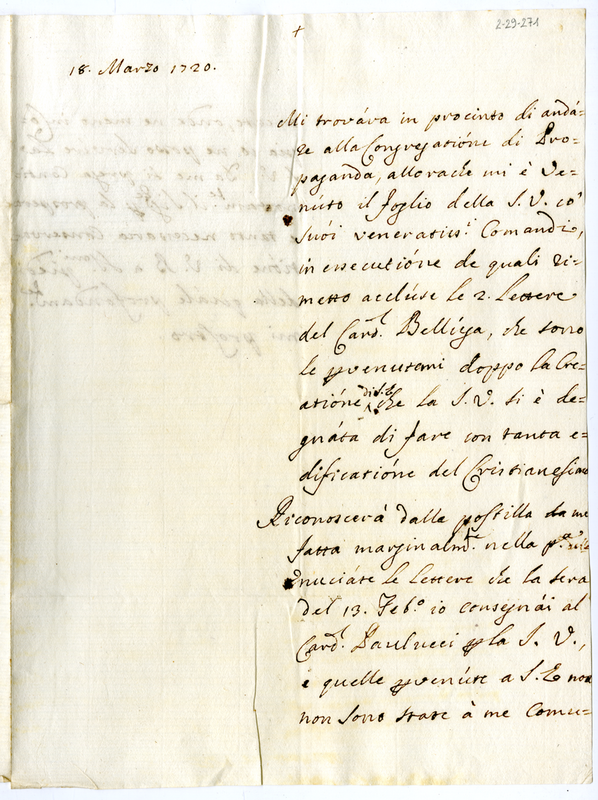 2-29-271
+
18. Marzo 1720.
Mi trováva in procinto di andá=
re alla Congregatióne di Pro=
paganda, allorache mi è Ve=
núto il foglio della S. V. co'
Suói veneratiss.i Comandi,
in essecutióne de quali ri=
metto acclúse le 2. lettere
del Card.l Bellúga, che sono
le pervenutemi doppo la Cre=
atióne di lui, che la S. V. si è de=
gnáta di fare con tanta e=
dificatióne del Cristianesimo
Riconoscerá dalla postilla da me
fatta marginalm.te nella p.a
enuciáte le lettere che la sera
del 13. Feb.o io consegnái al
Card.l Paulucci per la S. V.,
e quelle pervenúte a S. E non
non sono state à me Comu=